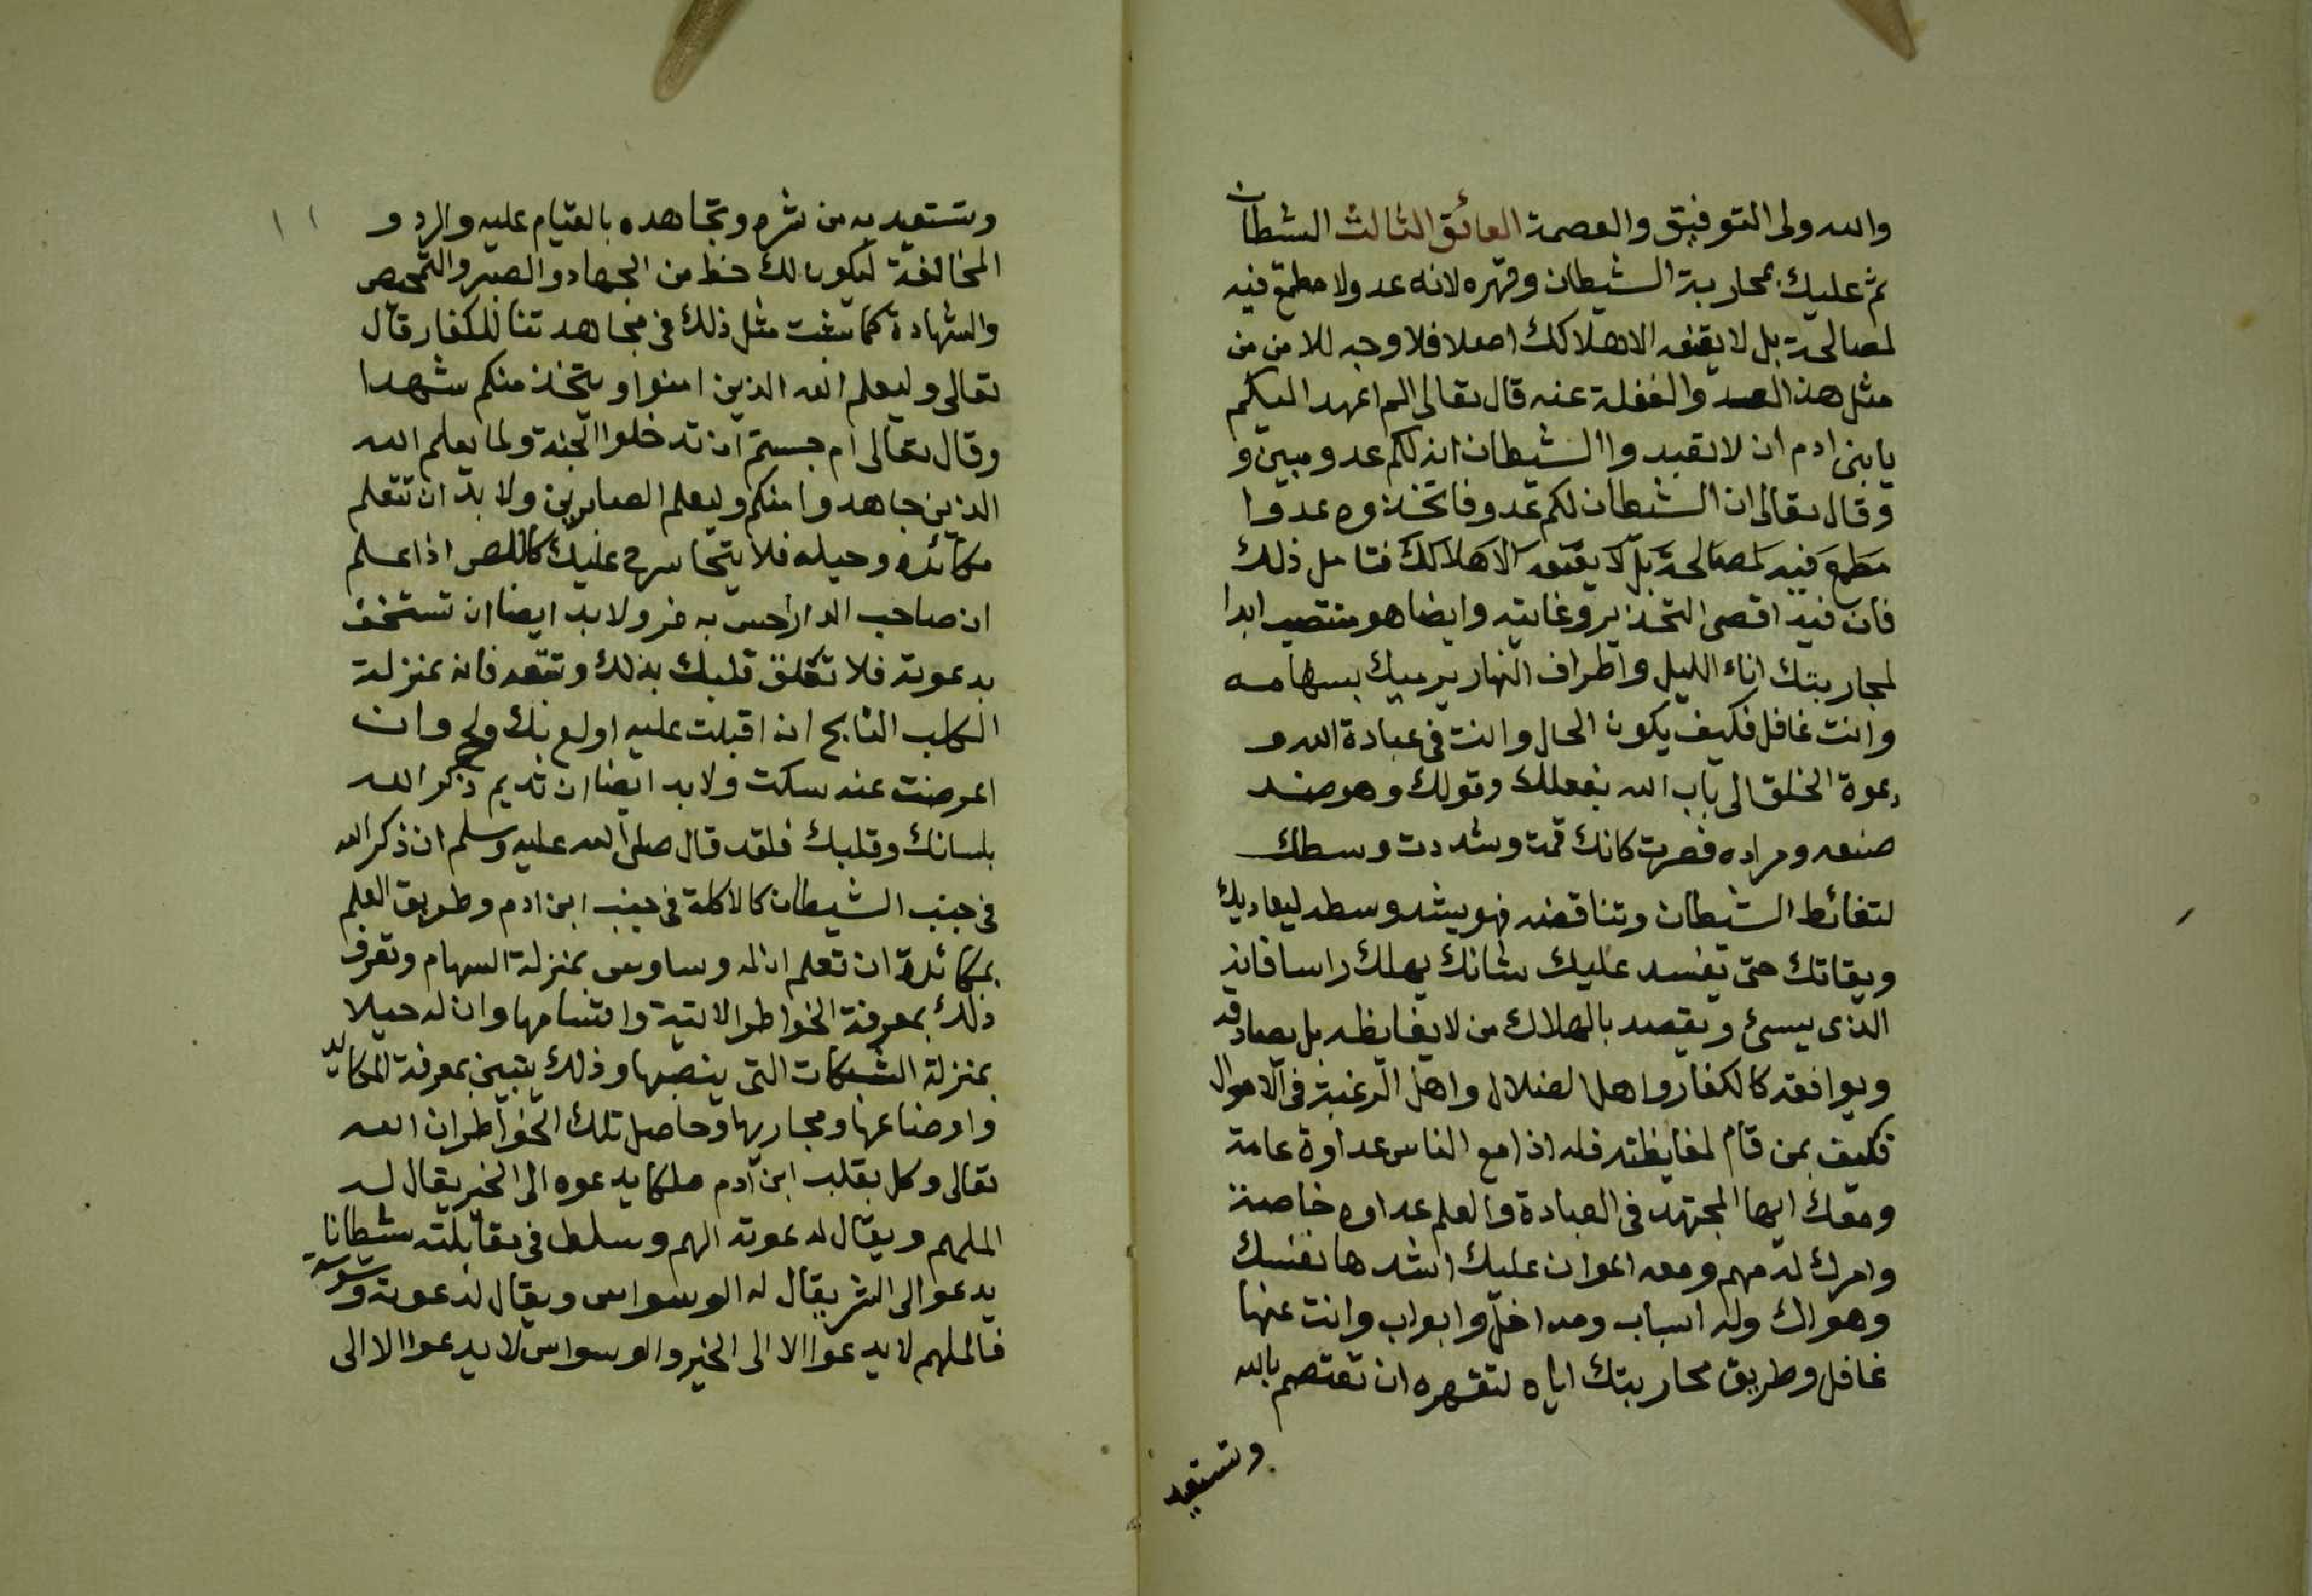 والله ولى التوفيق والعصمة العائق الثالث الشطان
ثم عليك بمحاربة الشيطان وقهره لانه عدو لا مطمع فيه
لمصالحة بل لا يقنعه الا هلاكك اصلا فلا وجه للامن من
مثل هذا العدو والغفلة عنه قال تعالى الم اعهد اليكم
يا بنى ادم ان لا تعبدوا الشيطان انه لكم عدو مبين و
وقال تعالى ان الشيطان لكم عدو فاتخذوه عدوا
مطمع فيه لمصالحة بل لا يقنعه الا هلاكك فتامل ذلك
فان فيه اقصى التحذير وغايته وايضا هو منتصب ابدا
لمحاربتك اناء الليل واطراف النهار يرميك بسهامه
وانت غافل فكيف يكون الحال وانت فى عبادة الله و
دعوة الخلق الى باب الله بفعلك وقولك وهو ضد
صنعه ومراده فصرت كانك قمت وشددت وسطك
لتغائط الشيطان وتناقضه فهو يشد وسطه ليعاديك
ويقاتك حتى يفسد عليك شانك يهلك راسا فانه
الذى يسئ ويقصد بالهلاك من لا يغايظه بل يصادقه
ويوافقه كالكفار واهل الضلال واهل الرغبة فى الاموال
فكيف بمن قام لمغايظته فله اذا مع الناس عداوة عامة
ومعك ايها المجتهد فى العبادة والعلم عداوه خاصة
وامرك له مهم ومعه اعوان عليك اشدها نفسك
وهواك وله اسباب ومداخل وابواب وانت عنها
غافل وطريق محاربتك اياه لتقهره ان تعتصم بالله
وتستعيد
١١
وتستعيد به من شره وتجاهده بالقيام عليه والرد و
المخالفة ليكون لك حظ من الجهاد والصبر والتمحيص
والشهادة كما ثبت مثل ذلك فى مجاهدتنا للكفار قال
تعالى وليعلم الله الذين امنوا ويتخذ منكم شهدا
وقال تعالى ام حسبتم ان تدخلوا الجنة ولما يعلم الله
الذين جاهدوا منكم وليعلم الصابرين ولا بد ان تتعلم
مكائده وحيله فلا يتجاسر ح عليك كاللص اذا علم
ان صاحب الدار احس به فر ولا بد ايضا ان تستخف
بدعوته فلا تعلق قلبك بذلك وتتبعه فانه بمنزلة
الكلب النابح ان اقبلت عليه اولع بك ولج وان
اعرضت عنه سكت ولا بد ايضا ان تديم ذكر الله
بلسانك وقلبك فلقد قال صلى الله عليه وسلم ان ذكر الله
فى جنب الشيطان كالاكلة فى جنب ابن ادم وطريق العلم
بمكائدة ان تعلم ان له وساوس بمنزلة السهام وتعرف
ذلك بمعرفة الخواطر الاتية واقسامها وان له حيلا
بمنزلة الشبكات التى ينصبها وذلك يتبين بمعرفة المكايد
واوضاعها ومجاريها وحاصل تلك الخواطر ان الله
تعالى وكل بقلب ابن آدم ملكا يدعوه الى الخير يقال له
الملهم ويقال لدعوته الهم وسلط فى مقابلته شيطانا
يدعو الى الشر يقال له الوسواس ويقال لدعوته وسوسة
فالملهم لا يدعوا الا الى الخير والوسواس لا يدعوا الا الى